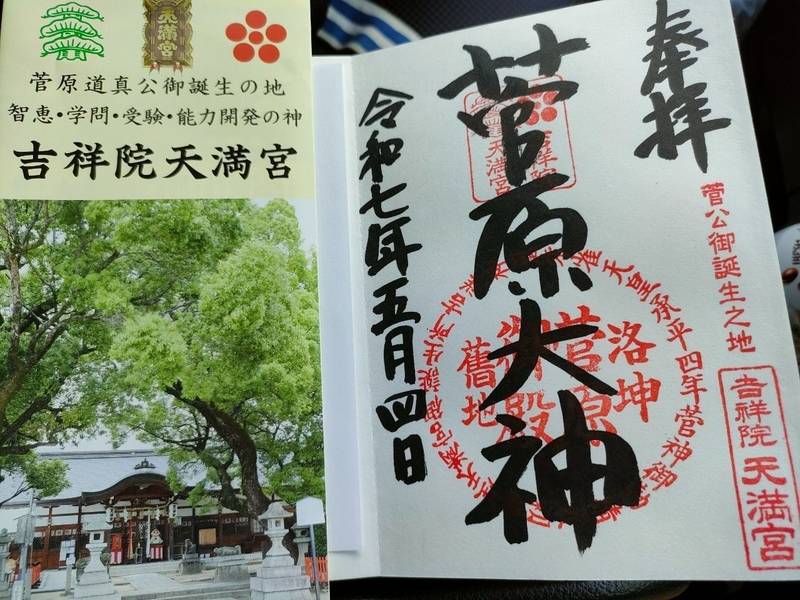 天満宮
菅原道真公御誕生の地
智恵・学問・受験・能力開発の神
吉祥院天満宮
奉拝
菅公御誕生之地
吉祥院天満宮
菅原大神
洛坤
菅原
御殿
舊地
天皇承平四年菅神御
令和七年五月四日